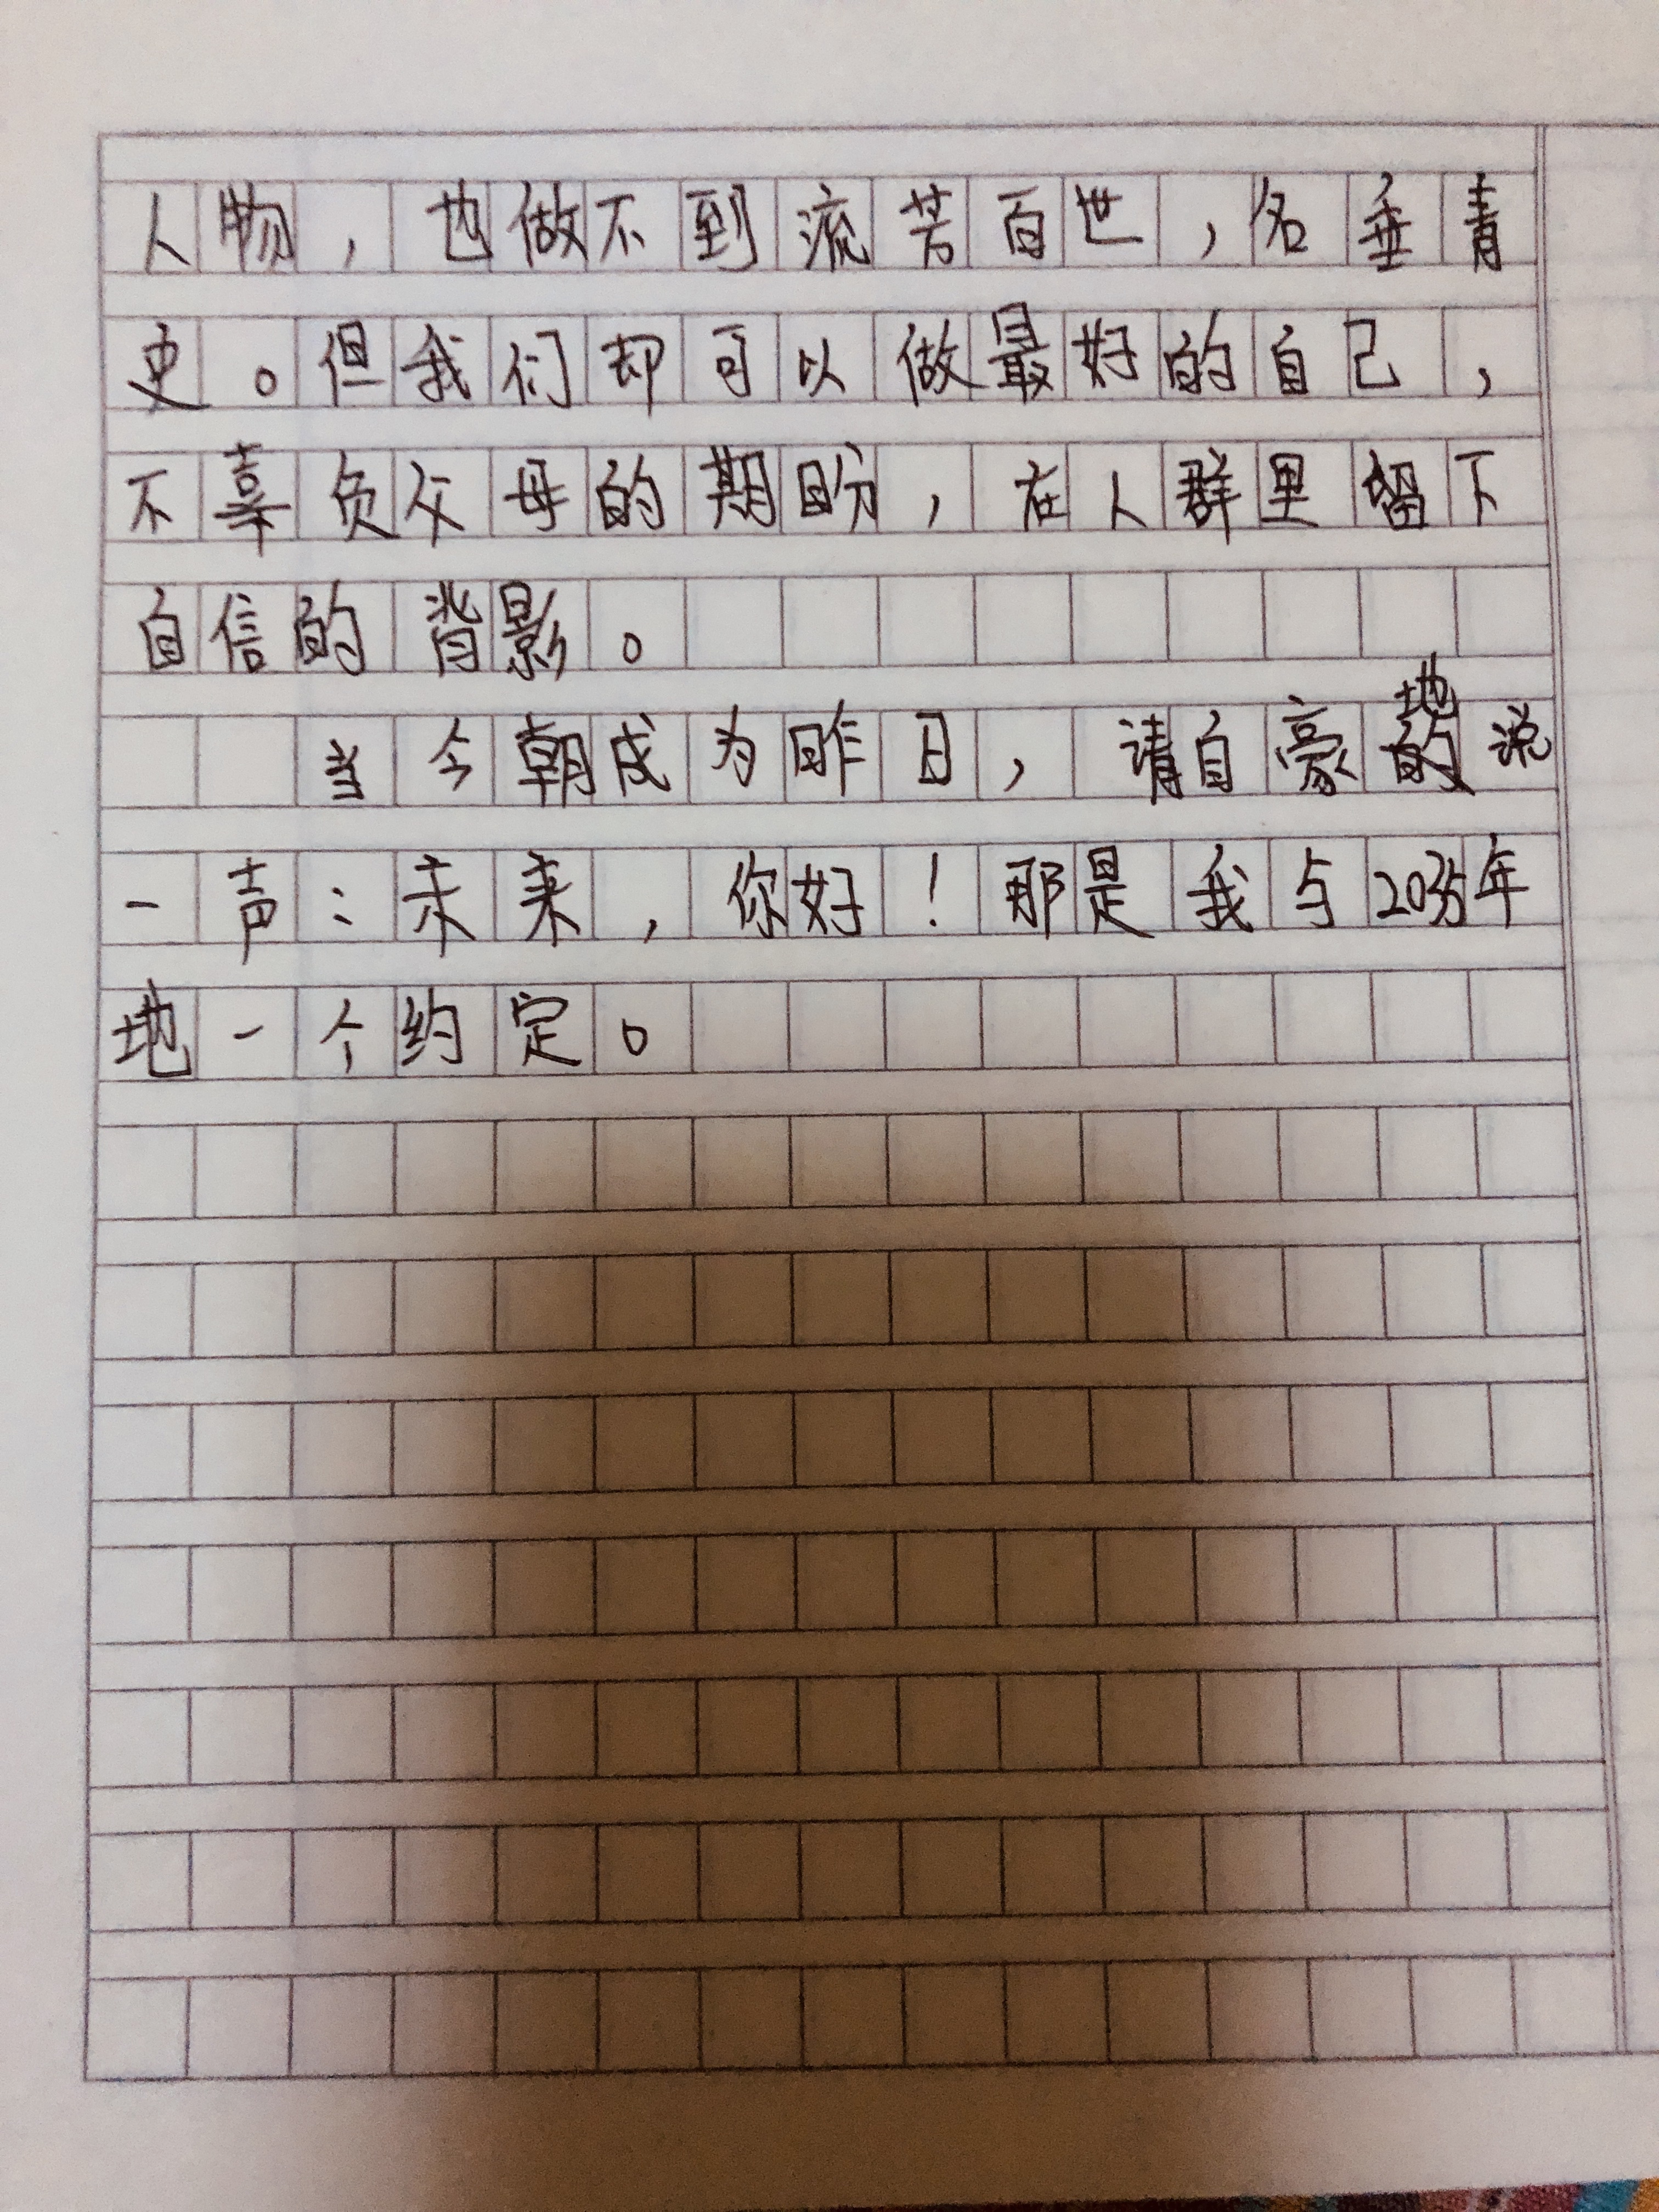 人物，也做不到流芳百世，名垂青
史。但我们却可以做最好的自己，
不辜负父母的期盼，在人群里留下
自信的背影。
当今朝成为昨日，请自豪地说
一声：未来，你好！那是我与2035年
地一个约定。